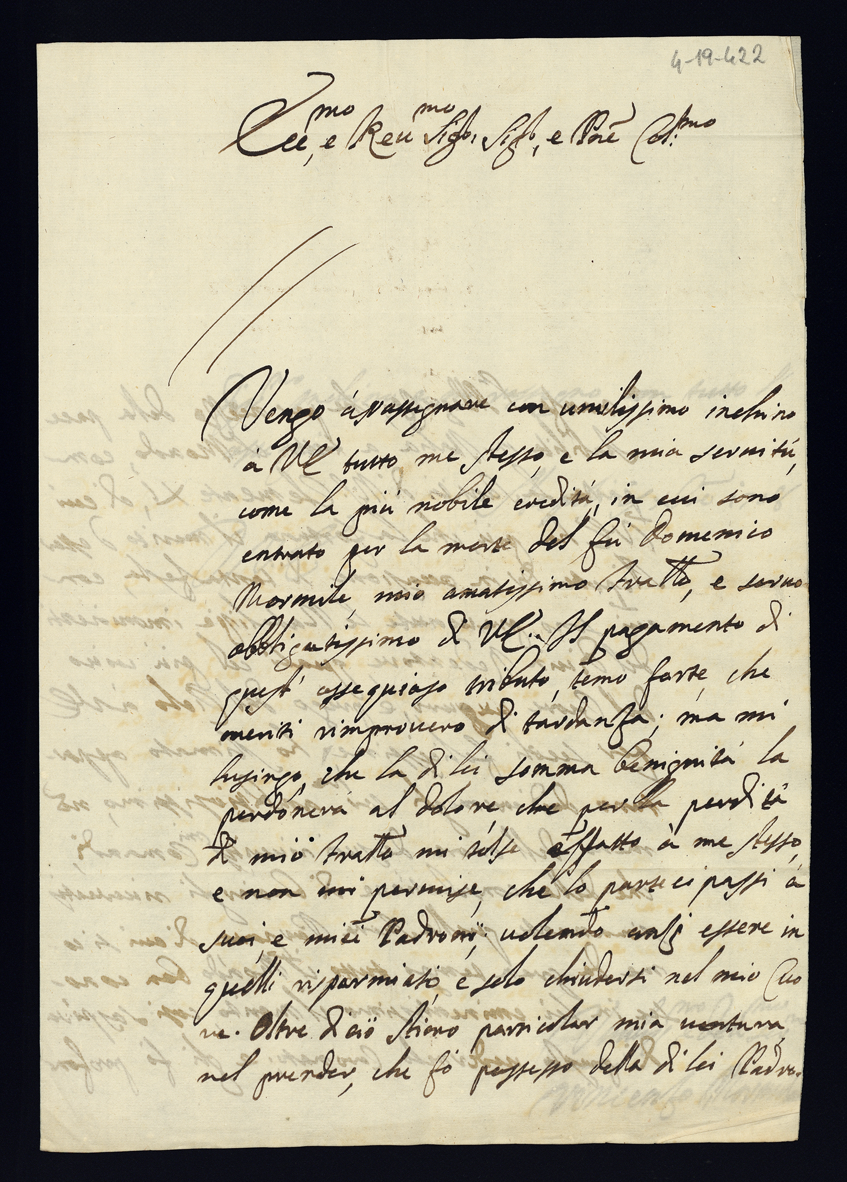 4-19-422
Ecc.mo, e Reu.mo Sig.r, Sig.r, e Pne Col.mo
Vengo á rassegnare con umilissimo inchino
à VE tutto me stesso, e la mia seruitú,
come la piú nobile ereditá, in cui sono
entrato per la morte del fú Domenico
Mormile, mio amatissimo fratello, e seruo
obbligatissimo di VE. Il pagamento di
quest' ossequioso tributo, temo forte, che
meriti rimprouero di tardanza; ma mi
lusingo, che la di lei somma benignitá la
perdonerá al dolore, che per la perdita
di mio fratello mi tolse affatto à me stesso,
e non mi permise, che lo partecipassi à
suoi, e miei Padroni; uolendo anzi essere in
quelli risparmiato, e solo chiudersi nel mio Cuo
re. Oltre di ciò stimo particolar mia uentura,
nel prender, che fò possesso della di lei Padro-